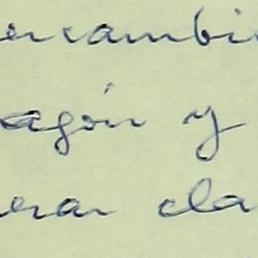 ercambi
agón y
erar cla